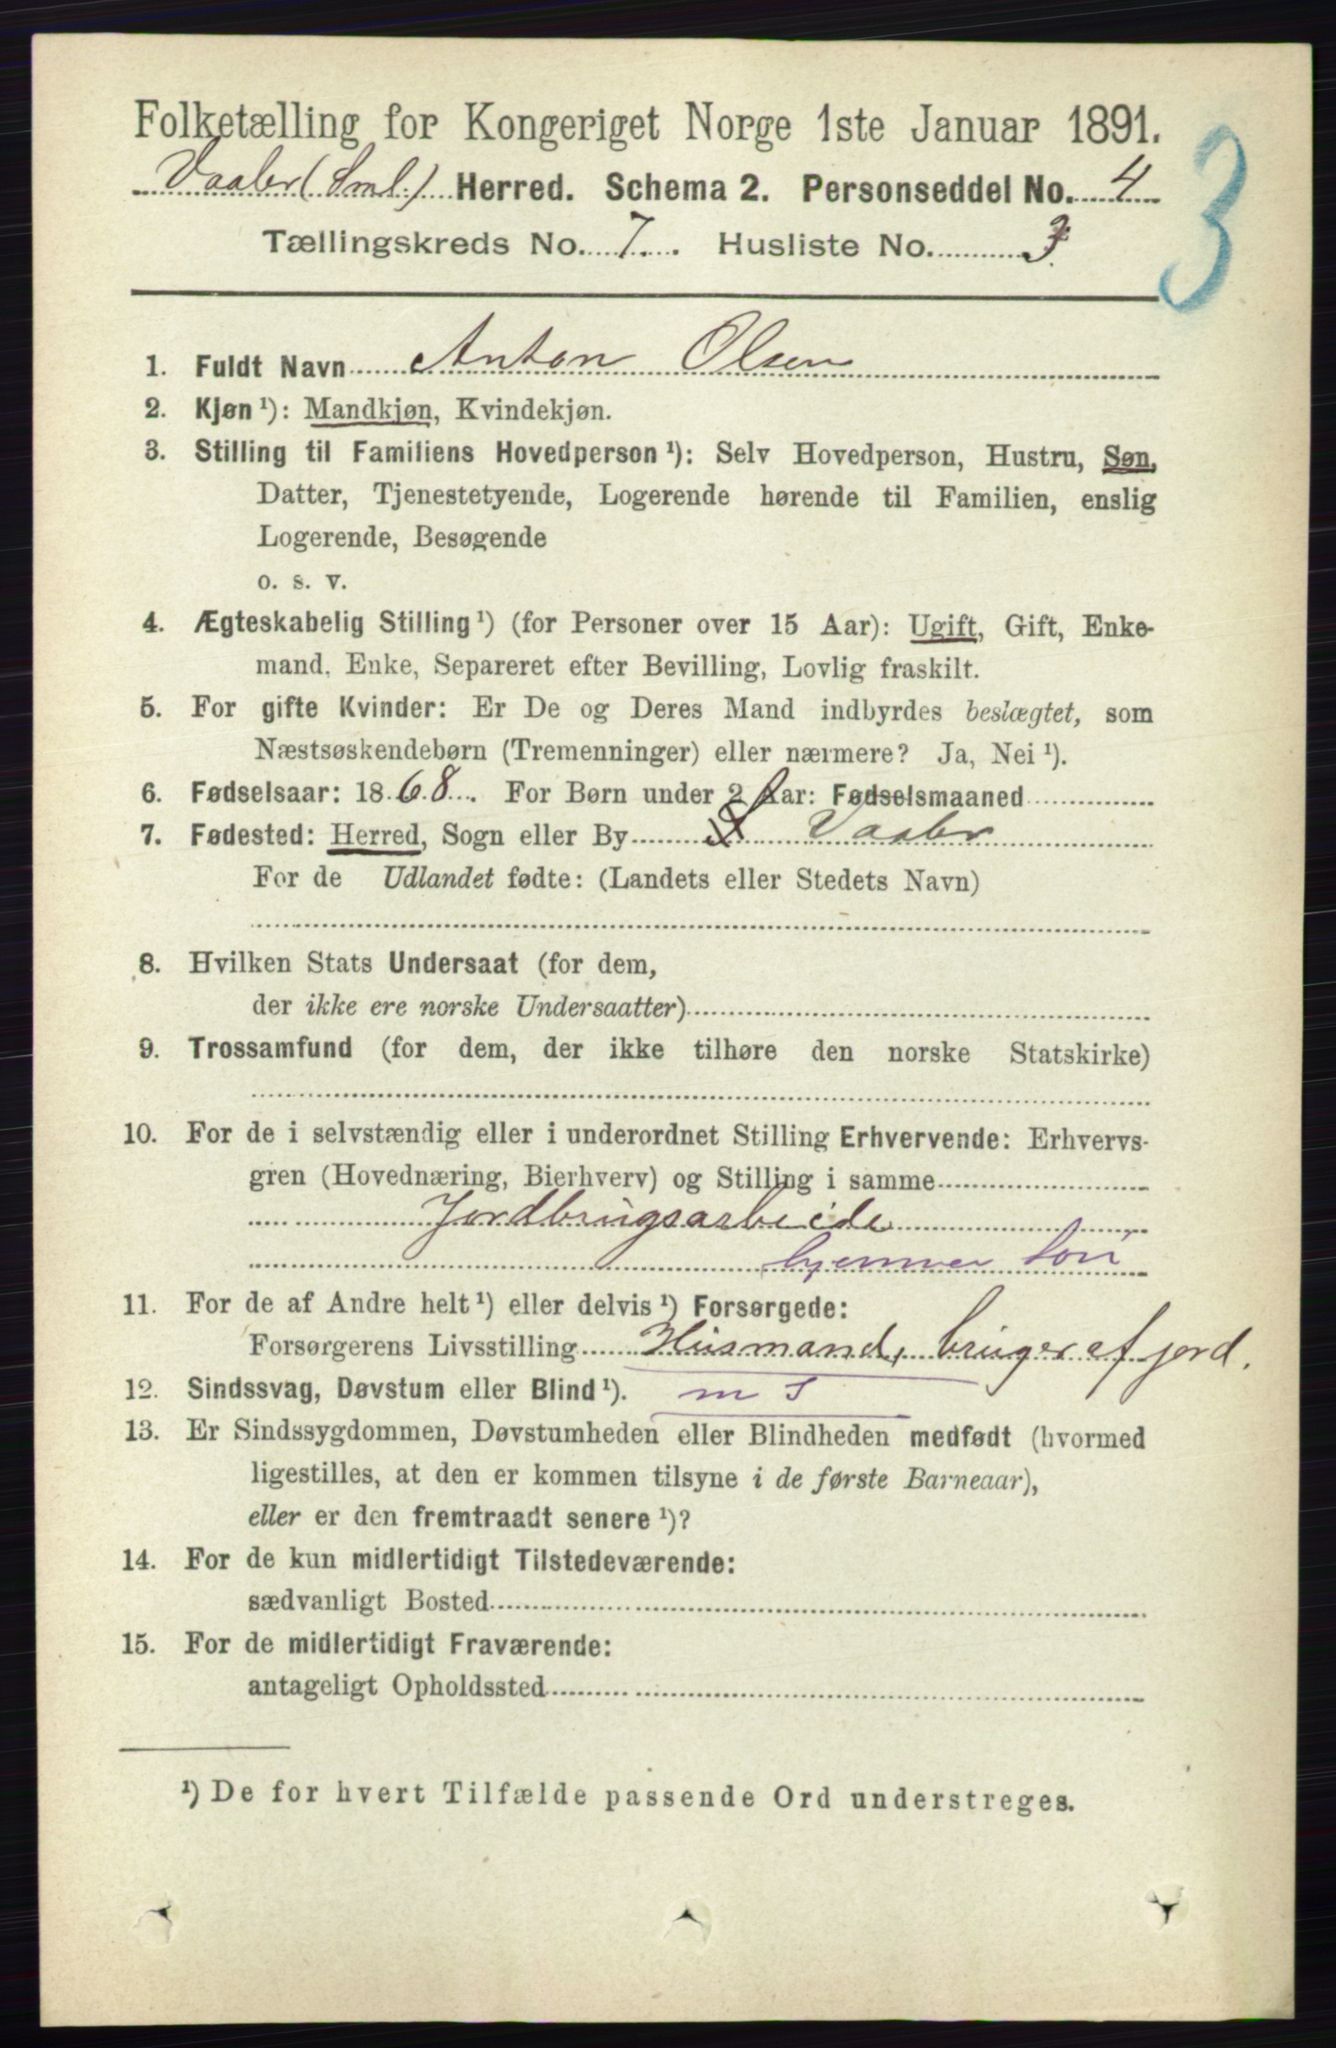 Folketælling for Kongeriget Norge 1ste Januar 1891.
3
Vaaler (Sml.) Herred. Schema 2. Personseddel No. 4
Tællingskreds No. 7. Husliste No. 3
1. Fuldt Navn Anton Olsen
2. Kjøn ¹): Mandkjøn, Kvindekjøn.
3. Stilling til Familiens Hovedperson ¹): Selv Hovedperson, Hustru, Søn,
Datter, Tjenestetyende, Logerende hørende til Familien, enslig
Logerende, Besøgende
o. s. v.
4. Ægteskabelig Stilling ¹) (for Personer over 15 Aar): Ugift, Gift, Enke-
mand, Enke, Separeret efter Bevilling, Lovlig fraskilt.
5. For gifte Kvinder: Er De og Deres Mand indbyrdes beslægtet, som
Næstsøskendebørn (Tremenninger) eller nærmere? Ja, Nei ¹).
6. Fødselsaar: 1868. For Børn under 2 Aar: Fødselsmaaned
7. Fødested: Herred, Sogn eller By Vaaler
For de Udlandet fødte: (Landets eller Stedets Navn)
8. Hvilken Stats Undersaat (for dem,
der ikke ere norske Undersaatter)
9. Trossamfund (for dem, der ikke tilhøre den norske Statskirke)
10. For de i selvstændig eller i underordnet Stilling Erhvervende: Erhvervs-
gren (Hovednæring, Bierhverv) og Stilling i samme
Jordbrugsarbeide
hjemmev. søn
11. For de af Andre helt ¹) eller delvis ¹) Forsørgede:
Forsørgerens Livsstilling Husmand, bruger af jord.
12. Sindssvag, Døvstum eller Blind ¹). m s
13. Er Sindssygdommen, Døvstumheden eller Blindheden medfødt (hvormed
ligestilles, at den er kommen tilsyne i de første Barneaar),
eller er den fremtraadt senere ¹)?
14. For de kun midlertidigt Tilstedeværende:
sædvanligt Bosted
15. For de midlertidigt Fraværende:
antageligt Opholdssted
¹) De for hvert Tilfælde passende Ord understreges.